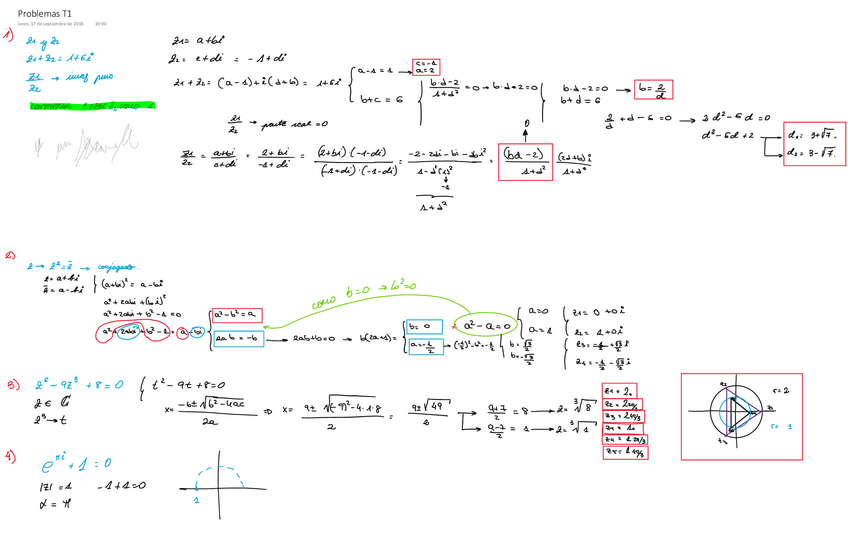 Problemas T1
lunes, 17 de septiembre de 2018 19:00
1)
z1 y z2
z1+z2 = 1+6i
z1/z2 → imag puro
z1 = a+bi
z2 = c+di = -1+di
z1+z2 = (a-1)+i(d+b) = 1+6i
a-1=1 →
c=-1
a=2
b+c=6
b·d-2/1+d² = 0 → b·d-2=0
b·d-2=0 → b=2/d
b+d=6
2/d +d-6=0 → 2d²-6d=0
d²-6d+2
d1 = 3+√7.
d2 = 3-√7.
z1/z2 → parte real =0
0
z1/z2 = a+bi/c+di = 2+bi/-1+di = (2+bi)·(-1-di)/(-1+di)·(-1-di) = -2-2di-bi-dbi²/1-d²(i)² = (bd-2)/1+d² (2d+b)i/1+d²
-1
1+d²
2)
z → z²=z̄ → conjugado.
z=a+bi
z̄=a-bi
(a+bi)² = a-bi
a²+2abi+(bi)²
a²+2abi+b²-1=0
a²+2abi+b²-1=a-bi
a²-b²=a
2ab=-b → 2ab+b=0 → b(2a+1)=
como b=0 → b²=0
b=0 → a²-a=0
a=-1/2
a=0
a=1
b=√3/2
b=-√3/2
z1=0+0i
z2=1+0i
z3=-1/2+√3/2 i
z4=-1/2-√3/2 i
3)
z⁶-9z³+8=0
z ∈ ℂ
z³→t
t²-9t+8=0
x= -b±√b²-4ac/2a ⇒ x= 9±√(-9)²-4·1·8/2 = 9±√49/2
9+7/2 = 8 → z=³√8
9-7/2 = 1 → z=³√1
r=2
r=1
4)
e^πi+1=0
|z|=1 -1+1=0
α=π
1